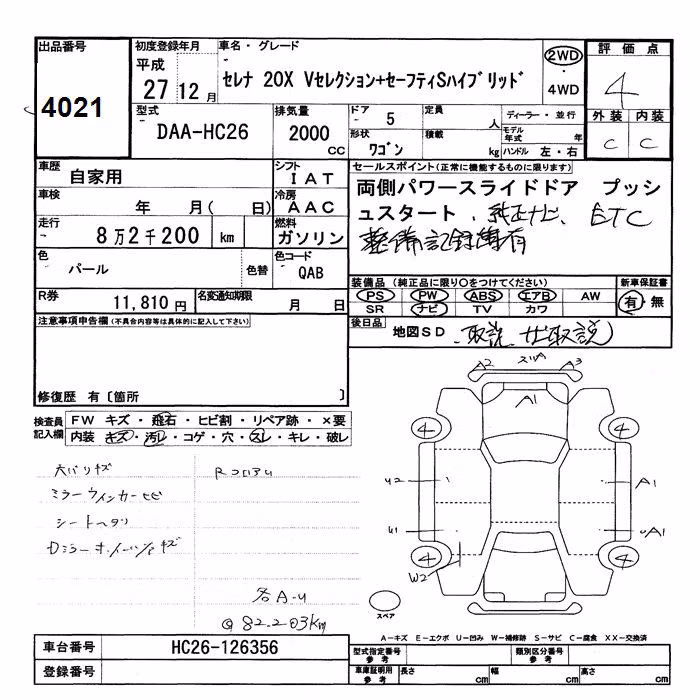 出品番号
4021
初度登録年月
平成
27 12 月
車名・グレード
セレナ 20X Vセレクション+セーフティSハイブリッド
2WD
・
4WD
評価点
4
外装 内装
C C
型式
DAA-HC26
排気量
2000
CC
ドア
5
形状
ワゴン
定員
人
積載
kg
ディーラー・並行
モデル年式
年
ハンドル 左・右
車歴
自家用
シフト
IAT
車検
年 月( 日)
冷房
AAC
走行
8万2千200 km
燃料
ガソリン
色
パール
色替
色コード
QAB
R券
11,810円
名変通知期限
月 日
セールスポイント(正常に機能するものに限ります)
両側パワースライドドア プッシ
ュスタート、純正ナビ、ETC
整備記録簿有
装備品(純正品に限り○をつけてください)
PS PW ABS エアB AW
SR ナビ TV カワ
新車保証書
有・無
後日品
地図SD、取説 ナビ取説
注意事項申告欄(不具合内容等は具体的に記入して下さい)
修復歴 有〔箇所 〕
検査員記入欄
FW キズ・飛石・ヒビ割・リペア跡・×要
内装 キズ・汚レ・コゲ・穴・スレ・キレ・破レ
ミラーウインカーヒビ
シートヘタリ
各A-U
@82.203km
A2 スリA A3
A1
4 4
U2 A1
U1 A1
4 4
W2
スペア
A-キズ E-エクボ U-凹み W-補修跡 S-サビ C-腐食 XX-交換済
車台番号
HC26-126356
登録番号
型式指定番号
参考
類別区分番号
参考
車庫証明用
参考
長さ cm
幅 cm
高さ cm